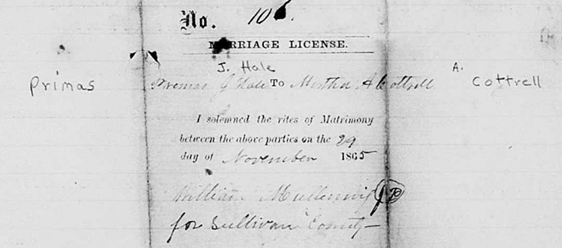 No. 106.
MARRIAGE LICENSE.
J. Hale A.
primas Primas J Hale To Martha A Cottrell Cottrell
I solemned the rites of Matrimony
between the above parties on the 29
day of November 1865
William Mullennix JP
for Sullivan County